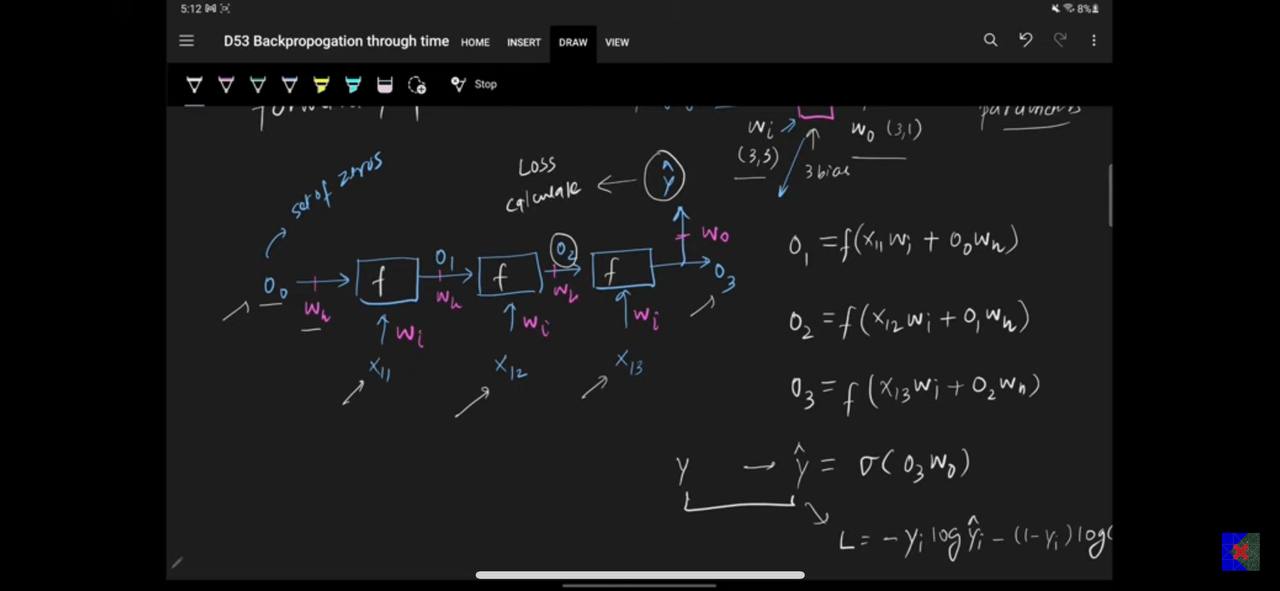 5:12 8%
D53 Backpropogation through time HOME INSERT DRAW VIEW
Stop
forward
parameters
Wi
W₀ (3,1)
(3,3)
3 bias
set of zeros
Loss
calculate
ŷ
W₀
O₀ f O₁ f O₂ f O₃
Wh Wh Wh
Wi Wi Wi
X₁₁ X₁₂ X₁₃
O₁ = f(X₁₁Wi + O₀Wh)
O₂ = f(X₁₂Wi + O₁Wh)
O₃ = f(X₁₃Wi + O₂Wh)
Y → ŷ = σ(O₃W₀)
L = -Yi log Ŷi - (1-Yi) log(